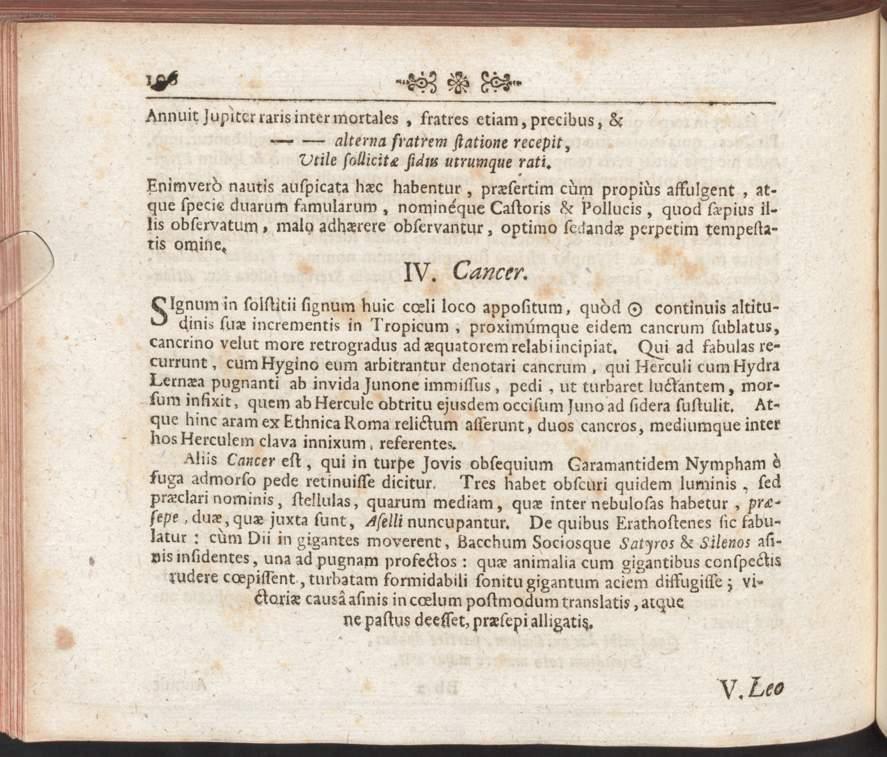 Annuit Jupiter raris inter mortales , fratres etiam, precibus, &
— — alterna fratrem ſtatione recepit,
Utile ſollicitæ ſidus utrumque rati.
Enimverò nautis auſpicata hæc habentur , præſertim cùm propiùs affulgent , at-
que ſpecie duarum famularum , nominéque Caſtoris & Pollucis , quod ſæpius il-
lis obſervatum , malo adhærere obſervantur , optimo ſedandæ perpetim tempeſta-
tis omine.
IV. Cancer.
SIgnum in ſolſtitii ſignum huic cœli loco appoſitum, quòd ☉ continuis altitu-
dinis ſuæ incrementis in Tropicum , proximúmque eidem cancrum ſublatus,
cancrino velut more retrogradus ad æquatorem relabi incipiat. Qui ad fabulas re-
currunt , cum Hygino eum arbitrantur denotari cancrum , qui Herculi cum Hydra
Lernæa pugnanti ab invida Junone immiſſus , pedi , ut turbaret luctantem , mor-
ſum infixit, quem ab Hercule obtritu ejusdem occiſum Juno ad ſidera ſuſtulit. At-
que hinc aram ex Ethnica Roma relictum aſſerunt, duos cancros, mediumque inter
hos Herculem clava innixum , referentes.
Aliis Cancer eſt , qui in turpe Jovis obſequium Garamantidem Nympham è
fuga admorſo pede retinuiſſe dicitur. Tres habet obſcuri quidem luminis , ſed
præclari nominis , ſtellulas, quarum mediam, quæ inter nebuloſas habetur , præ-
ſepe , duæ, quæ juxta ſunt, Aſelli nuncupantur. De quibus Erathoſtenes ſic fabu-
latur : cùm Dii in gigantes moverent, Bacchum Sociosque Satyros & Silenos aſi-
nis inſidentes, una ad pugnam profectos : quæ animalia cum gigantibus conſpectis
rudere cœpiſſent , turbatam formidabili ſonitu gigantum aciem diffugiſſe ; vi-
ctoriæ causâ aſinis in cœlum poſtmodum translatis , atque
ne paſtus deeſſet, præſepi alligatis.
V. Leo